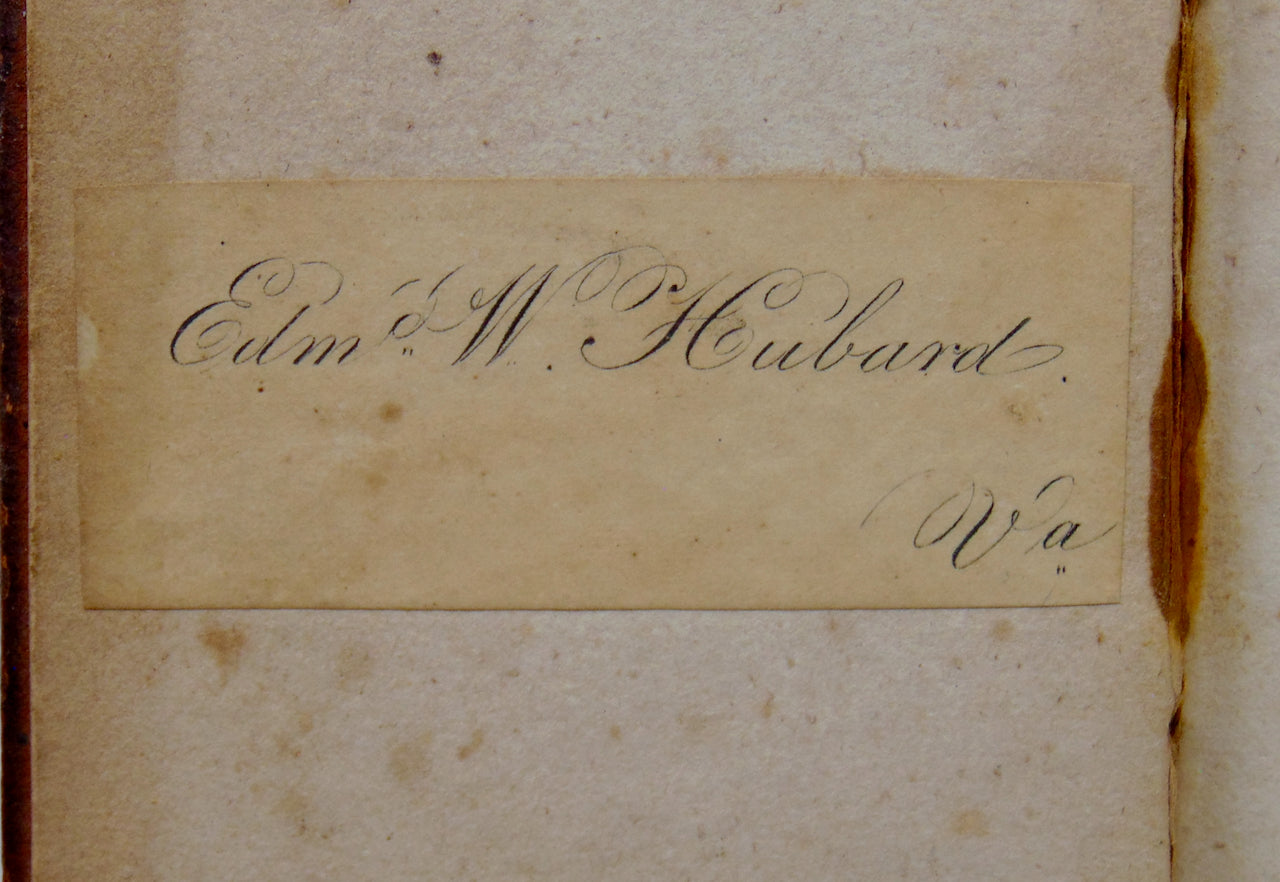 Edmd. W. Hubard.
Va